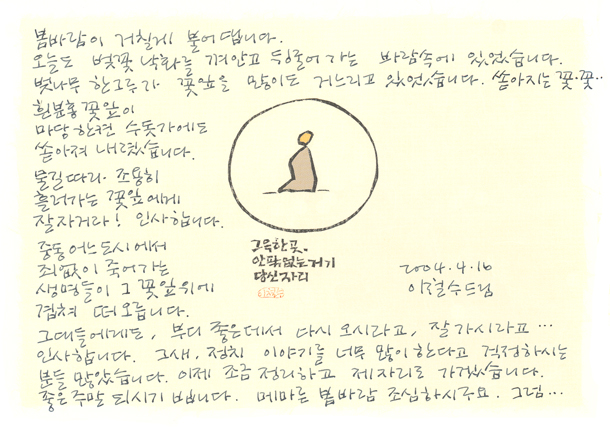 봄바람이 거칠게 불어댑니다.
오늘도 벚꽃 낙화를 껴안고 뒹굴어 가는 바람속에 있었습니다.
벚나무 한그루가 꽃잎을 많이도 거느리고 있었습니다. 쏟아지는 꽃·꽃··
흰분홍 꽃잎이
마당 한켠 수돗가에도
쏟아져 내렸습니다.
물길따라 조용히
흘러가는 꽃잎에게
잘자거라! 인사합니다.
중동 어느 도시에서
죄없이 죽어가는
생명들이 그 꽃잎위에
겹쳐 떠오릅니다.
그대들에게도, 부디 좋은데서 다시 오시라고, 잘가시라고 …
인사합니다. 그새, 정치 이야기를 너무 많이 한다고 걱정하시는
분들 많았습니다. 이제 조금 정리하고 제자리로 가겠습니다.
좋은 주말 되시기 빕니다. 메마른 봄바람 조심하시구요. 그럼…
고요한 곳.
안팎없는 거기
당신자리
2004.4.16
이철수드림